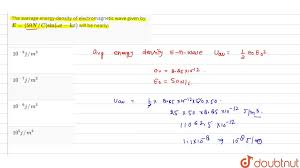 The average energy density of electromagnetic wave given by
E = (50N / C)sin(ωt − kx) will be nearly:
10⁻⁸ j / m³
10⁻⁷ j / m³
10⁻⁶ j / m³
10⁵ j / m³
Avg energy density E-m-wave Uav = 1/2 ε₀E₀²
ε₀ = 8.85 × 10⁻¹²
E₀ = 50N/C
Uav = 1/2 × 8.85×10⁻¹²×50×50
25 × 50 × 8.85 × 10⁻¹² J/m³
11062.5 × 10⁻¹²
1.1×10⁻⁸ ⇒ 10⁻⁸ J/m³
doubtnut